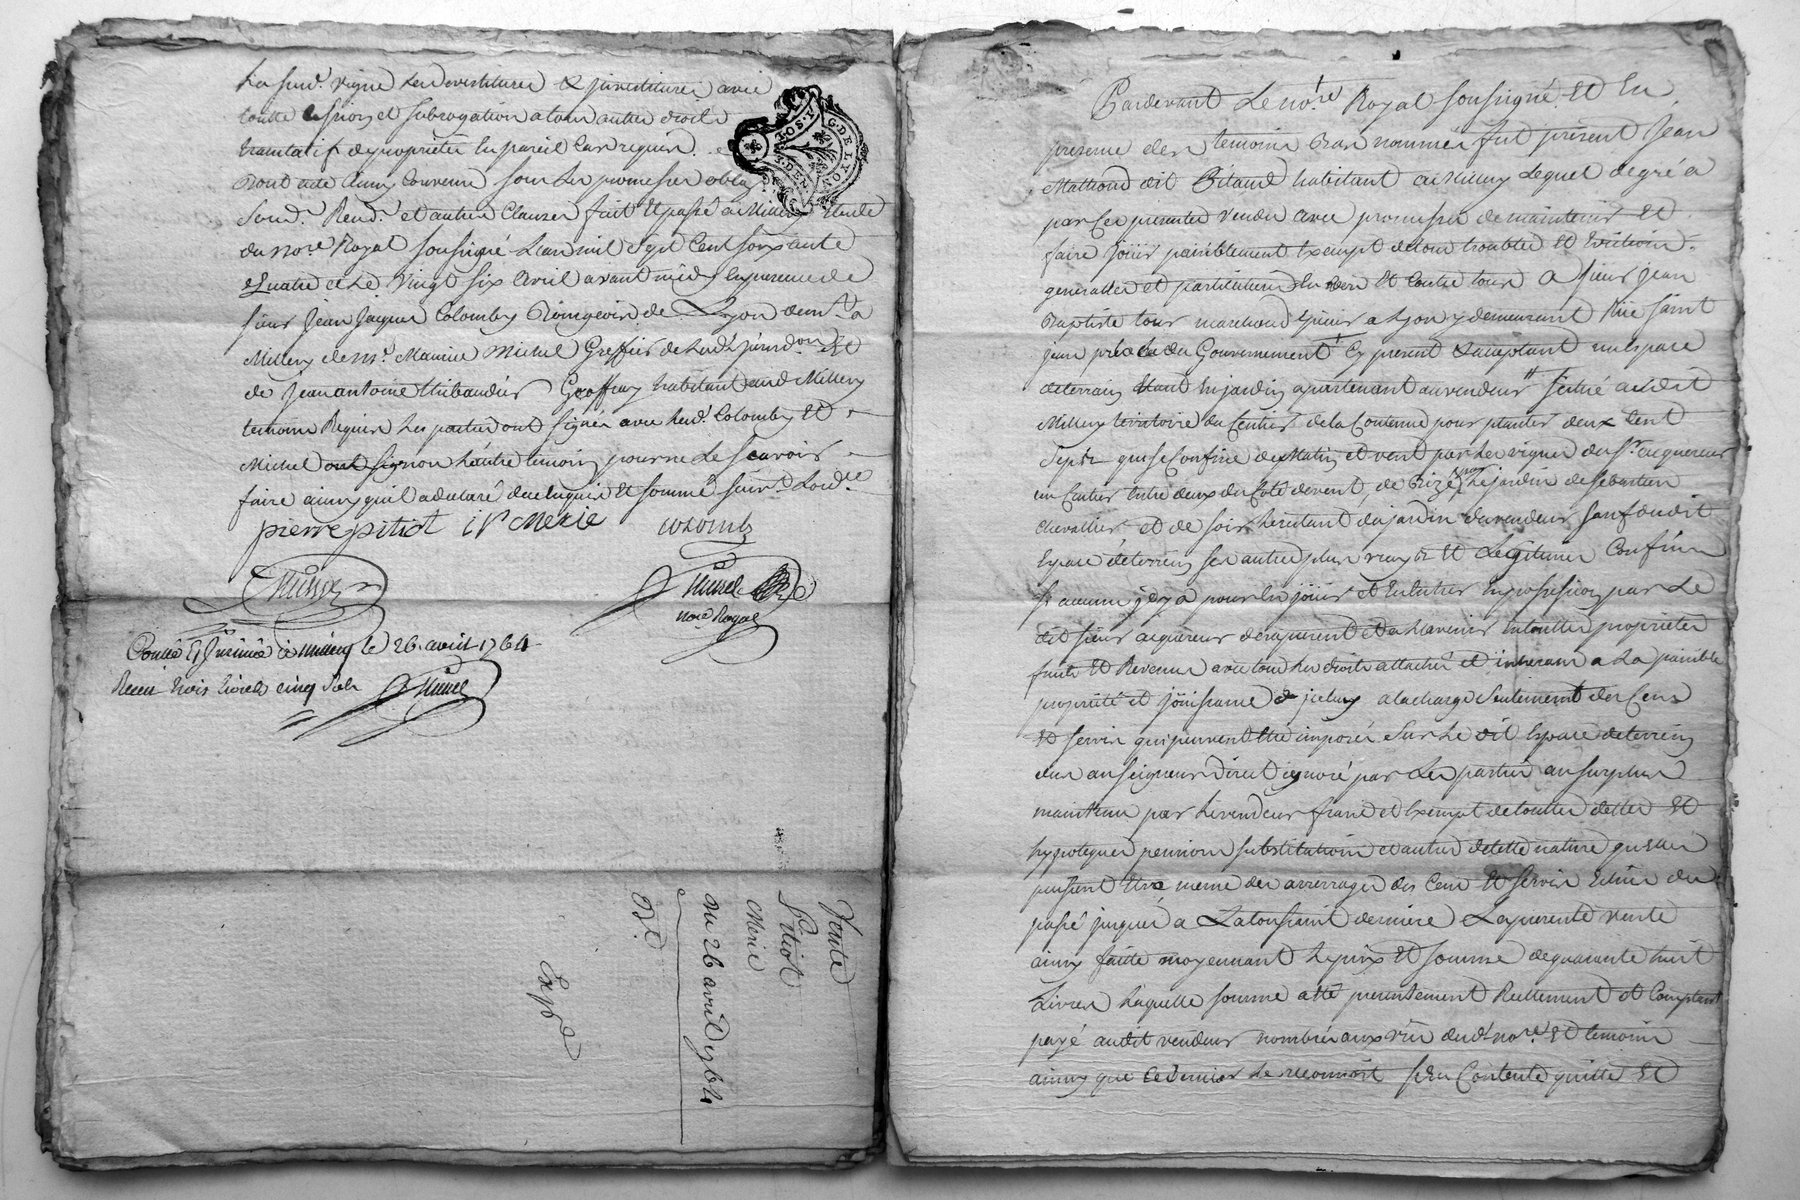 La susd. vigne les devestitures & jnvestitures avec
toutte cession et subrogation a tous autres droits
translatif de proprieté en pareil cas requis
Dont acte ainsy convenu sous les promesses oblig.
Soud. Rend. et autres Clauses fait et passé a Millery Etude
du nore Royal soussigné L'an mil sept Cent soixante
Quatre et le vingt six avril avant midy en presence de
sieur Jean Jaques Colomby Bourgeois de Lyon dem.t a
Millery de mr. Maurice Michel Greffier de lad. jurisdon Et
de Jean antoine thibaudier habitant aud Millery
temoins Requis les parties ont signés avec led. Colomby Et
Michel non l'autre temoin pour ne le scavoir
faire ainsy qu'il a declaré de ce enquis Et sommé suivt. Lorde.
pierre pitiot
colomby
nore Royal
Conllé Et Jnsinué a millery le 26. avril 1764
Receu trois livres cinq sols
G. DE LYON
Vente
Pitiot
Merie
du 26 avril 1764
Expd
Pardevant Le nore Royal soussigné Et En
presence des temoins Bas nommés fut présent Jean
dit Bitaud habitant a Millery Lequel de gré a
par ces presentes vendu avec promesse de maintenir Et
faire jöuir paisiblement Exempt de tous troubles Et Evictions
generalles et particulieres Envers Et Contre tous a sieur jean
Baptiste tour marchand a Lyon y demeurant Rue saint
jean près du Gouvernement Cy present Et acceptant un Espace
de terrain En jardin apartenant au vendeur situé audit
Millery territoire du de la Contenue pour planter deux Cent
Seps qui se Confine de Matin et vent par les vignes du Sr. acquereur
un Entre deux du Coté de vent, de Bize le jardin de sebastien
chevallier et de soir le restant du jardin du vendeur sauf dudit
Espace de terrein ses autres plus vrays Et Legitimes Confins
si aucuns j'en y a pour En jöuir et En possession par Le
dit sieur acquereur des a present et a L'avenir En toutte proprieté
fruits Et Revenus avec tous les droits attachés et inherans a La paisible
proprieté et jöuissance d'jceluy a la charge Seulement des Cens
Et servis qui peuvent Etre imposés Sur Le dit Espace de terrein
deus au seigneur direct ignoré par Les parties au surplus
maintenu par le vendeur franc et Exempt de touttes dettes Et
hypoteques pensions substitutions et autres de cette nature qu'elles
puissent Etre meme des arrerages des Cens Et servis du
passé jusques a La toussaint derniere La presente vente
ainsy faitte moyennant le prix Et somme de quarante huit
Livres Laquelle somme a Eté presentement Reellement et Comptant
payé audit vendeur nombrée aux vües dud. nore. Et temoins
ainsy que ce dernier Le reconnoit s'en Contente quitte Et